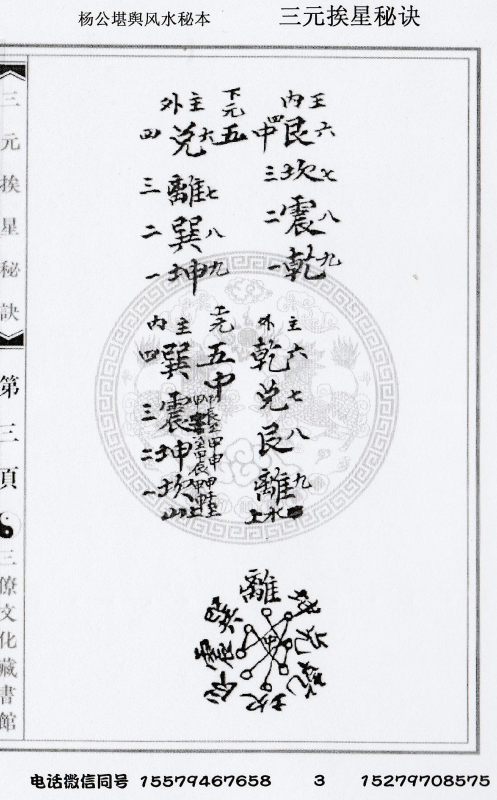 杨公堪舆风水秘本 三元挨星秘诀
三元挨星秘訣
第三頁
三僚文化藏書館
内主
四艮六
三坎七
二震八
一乾九
下元
五中
外主
四兑六
三離七
二巽八
一坤九
外主
乾六
兑七
艮八
離九
水上
上元
五中
内主
四巽
三震
二坤
一坎
山上
離
坤
兑
乾
坎
艮
震
巽
中
电话微信同号 15579467658 3 15279708575